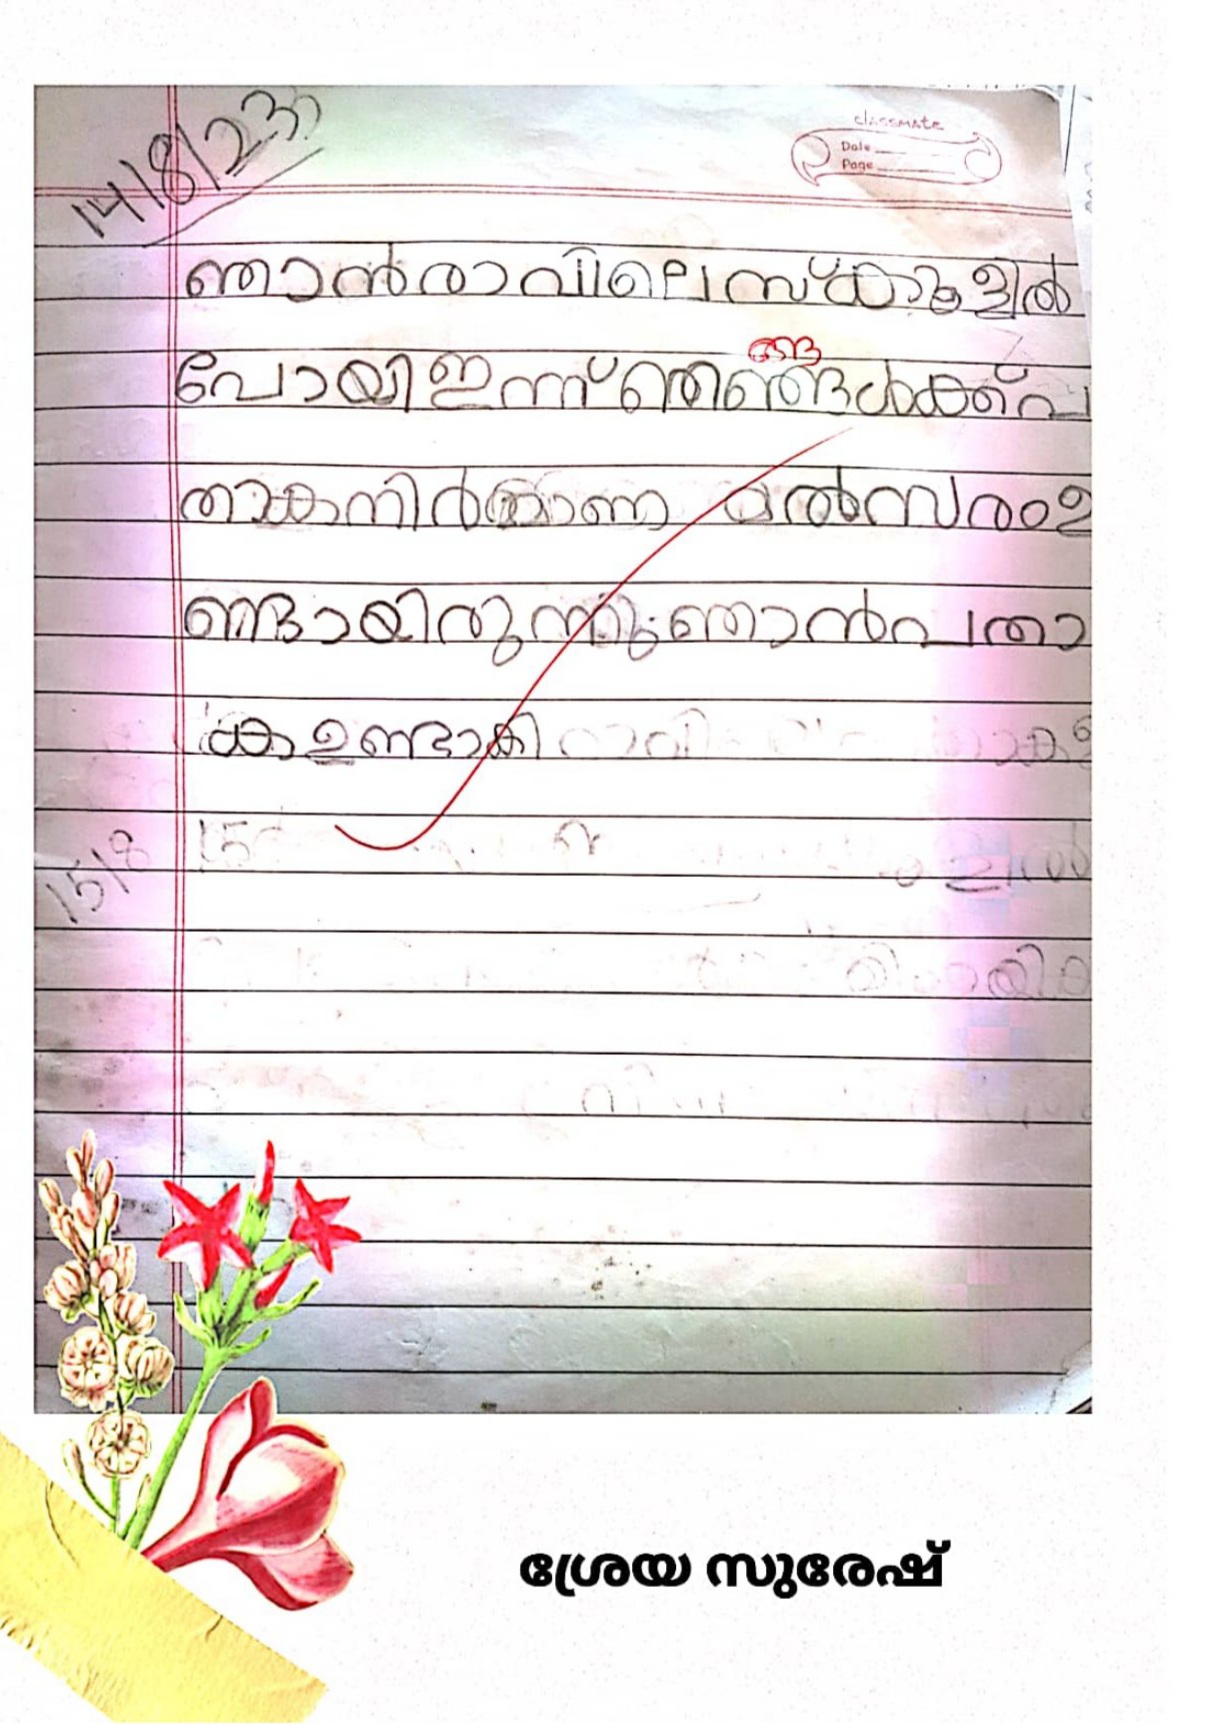 14/8/23
classmate
Date
Page
ഞാൻ രാവിലെ സ്കൂളിൽ
ങ്ങ
പോയി ഇന്ന് ഞങ്ങൾക്ക് പ
താക നിർമ്മാണ മൽസരം ഉ
ണ്ടായിരുന്നു. ഞാൻ പതാ
ക ഉണ്ടാകി
15/8
15
ശ്രേയ സുരേഷ്